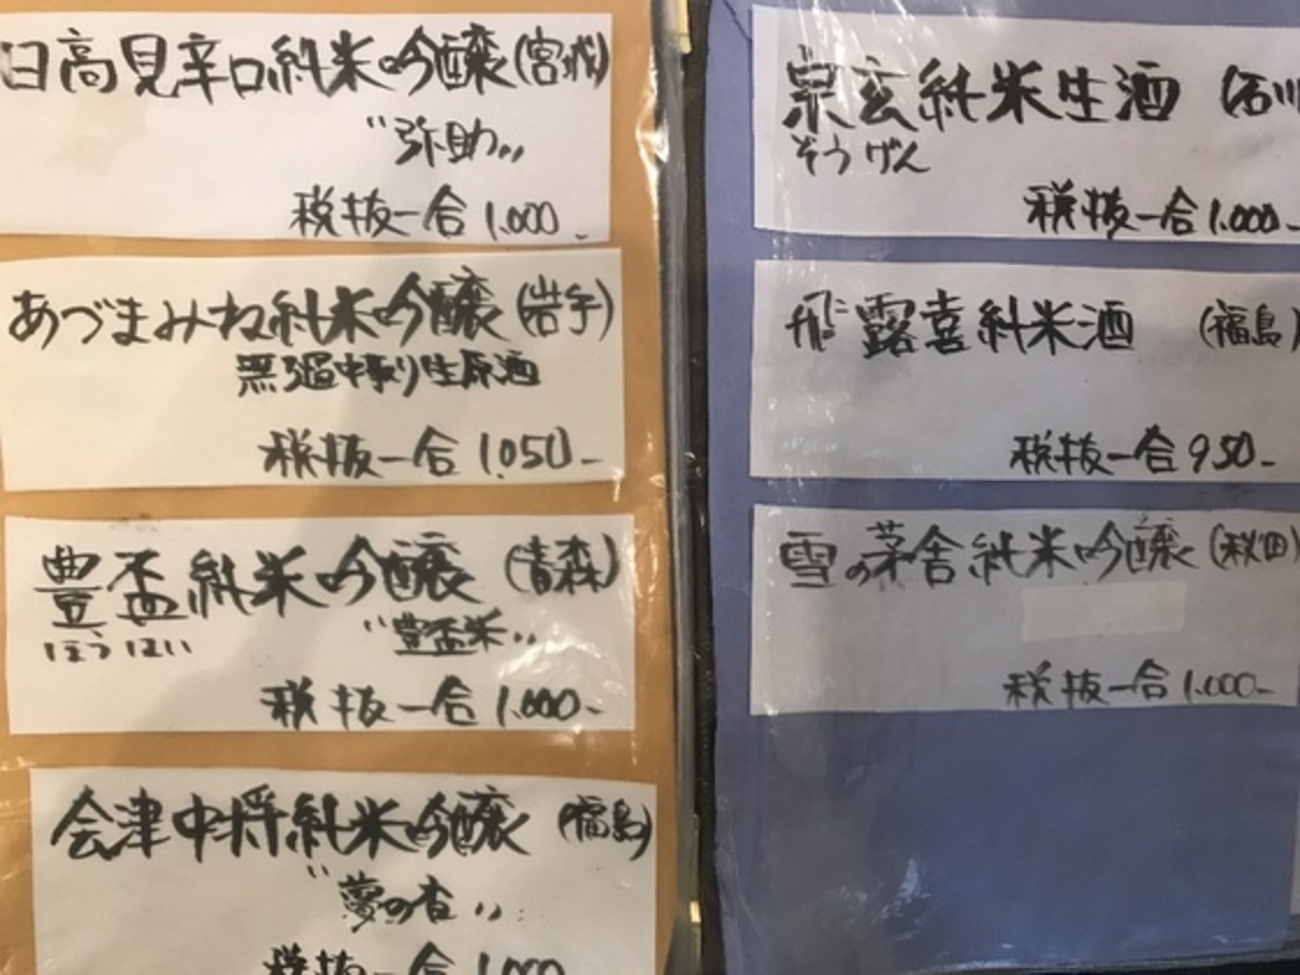 日高見辛口純米吟醸(宮城)
"弥助"
税抜一合 1.000_
あづまみね純米吟醸(岩手)
無ろ過中取り生原酒
税抜一合 1.050-
豊盃純米吟醸(青森)
ほうはい
"豊盃米"
税抜一合 1.000-
会津中将純米吟醸(福島)
"夢の香"
税抜一合 1.000
宗玄純米生酒(石川
そうげん
税抜一合 1.000-
飛露喜純米酒(福島)
税抜一合 950-
雪の茅舎純米吟醸(秋田)
税抜一合 1.000-